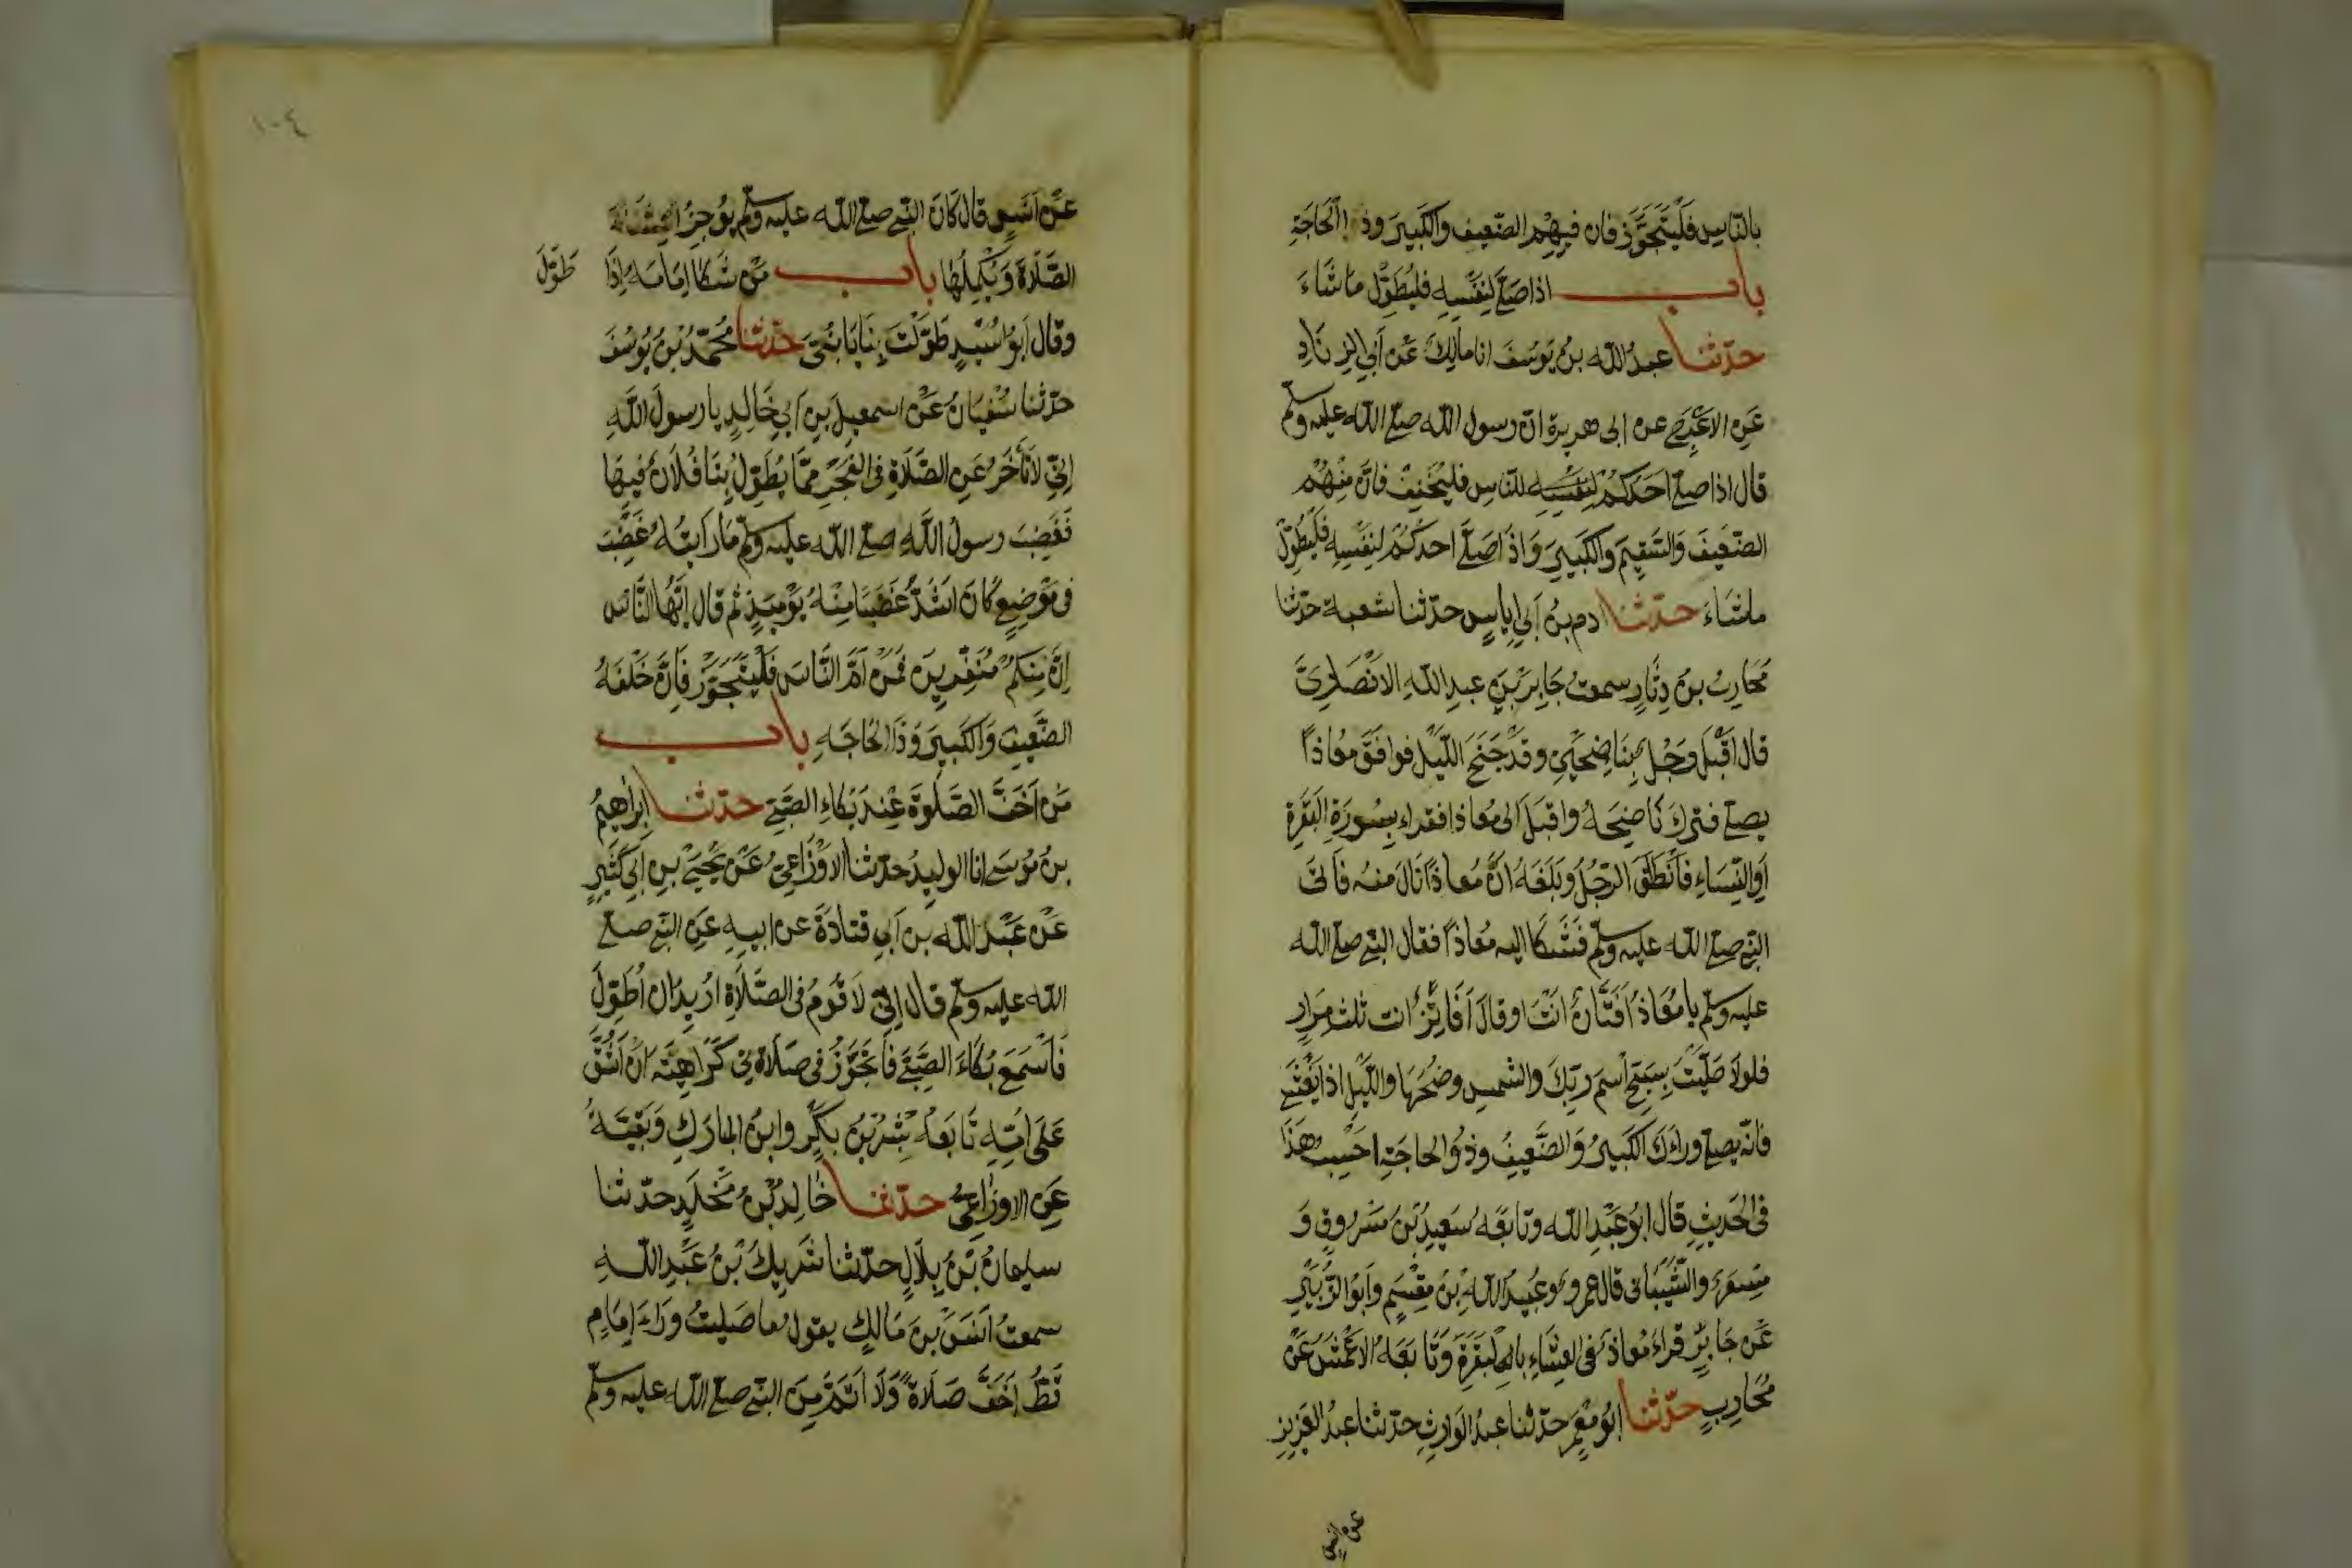 بالنّاس فَلْيَتَجَوَّز فان فيهم الضعيف والكَبيرَ وذا الْحَاجَةِ
باب اذا صَلّى لِنَفْسِهِ فليُطَوِّل ما شَاءَ
حدّثنا عبدُ الله بنُ يوسُفَ انا مالِكٌ عَنْ أبي الزِنَادِ
عَنِ الاعْرَجِ عن ابى هريرة انّ رسول الله صلى الله عليه وسلم
قال اذا صلى احَدُكُمْ لِنَفْسِهِ للناس فليُخَفِّفْ فانَّ مِنْهُمْ
الضّعيفَ وَالسَّقِيمَ والكَبيرَ وَاذَا صَلَّى احدُكُمْ لِنَفْسِهِ فَلْيُطَوِّلْ
ماشَاءَ حدّثنا ادم بنُ أبي إياسٍ حدّثنا شعبة حدّثنا
مُحَارِبُ بنُ دِثَارٍ سمعتُ جَابِرَ بْنَ عبدِ اللهِ الانْصَارِيَّ
قال اَقْبَلَ رَجُلٌ بِنَاضِحَيْنِ وقَدْ جَنَحَ اللّيْلُ فوافَقَ مُعَاذًا
يصلى فترك ناضِحَهُ واقبَلَ الى مُعَاذ فقراء بِسُورَةِ الْبَقَرَةِ
اَوِ النِّسَاءِ فَانْطَلَقَ الرّجُلُ وبَلَغَهُ انَّ مُعَاذًا نَالَ منهُ فَاتَى
النبى صلى الله عليه وسلم فَشَكَا اليه مُعَاذًا فقال النبى صلى الله
عليه وسلم يا مُعَاذُ اَفَتَّانٌ انْتَ اوقالَ اَفَاتِنٌ انت ثلث مِرَارٍ
فلولا صَلّيْتَ بِسَبِّحِ اسْمَ رَبِّكَ والشمس وضُحٰهَا واللّيْلِ اذا يَغْشَى
فانّه يصلى وراءَكَ الكَبيرُ وَالضَّعِيفُ وذُو الحاجَةِ احْسِبُ هَذَا
فى الحَدِيثِ قال ابُو عَبْدِ الله وتابعَهُ سَعِيدُ بْنُ مَسْرُوقٍ وَ
مِسْعَرٌ والشَّيْبَانى قال عمرو وَعُبَيْدُ اللهِ بْنُ مِقْسَمٍ وَأبُو الزُّبَيْرِ
عَنْ جَابِرٍ قراءَ مُعَاذٌ فى العِشَاءِ بالْبَقَرَةِ وَتَابَعَهُ الاَعْمَشُ عَنْ
مُحَارِبٍ حدّثنا ابُو مَعْمَرٍ حدّثنا عبدُ الوَارِثِ حدّثنا عبدُ العَزِيزِ
عن انس
١٠٤
عَنْ اَنَسٍ قال كَانَ النّبى صلى الله عليه وسلم يُوجِزُ
الصَّلاةَ وَيُكْمِلُهَا باب مَنْ شَكَا اِمَامَهُ اِذَا طَوَّلَ
وقال ابُو اُسَيْدٍ طَوَّلْتَ بِنَا يَا بُنَىَّ حدّثنا مُحَمَّدُ بْنُ يُوسُفَ
حدّثنا سُفْيَانُ عَنْ اسمعيلَ بنِ أبي خَالِدٍ يا رسولَ اللَّهِ
اِنِّي لاَتَأَخَّرُ عَنِ الصَّلَاةِ فى الفَجْرِ مِمَّا يُطَوِّلُ بِنَا فُلَانٌ فيها
فَغَضِبَ رسولُ اللَّهِ صلى الله عليه وسلم مَا رَاَيْتُهُ غَضِبَ
فى مَوْضِعٍ كَانَ اَشَدَّ غَضَبًا مِنْهُ يَوْمَئِذٍ ثم قال اَيُّهَا النَّاسُ
اِنَّ مِنْكُمْ مُنَفِّرِينَ فَمَنْ اَمَّ النَّاسَ فَلْيَتَجَوَّزْ فَاِنَّ خَلْفَهُ
الضَّعِيفَ وَالكَبِيرَ وَذَا الحَاجَهِ باب
مَن اَخَفَّ الصَّلٰوةَ عِنْدَ بُكَاءِ الصَّبِيِّ حدّثنا اِبْرَاهِيمُ
بنُ مُوسَى انا الوليدُ حدّثنا الاَوْزَاعِيُّ عَنْ يَحْيَى بنِ أبي كَثِيرٍ
عَنْ عَبْدِ اللهِ بن أبي قَتَادَةَ عن ابيهِ عَنِ النّبى صلى
الله عليه وسلم قال اِنِّي لاَقُومُ فى الصَّلَاةِ اُرِيدُ ان اُطَوِّلَ
فَاَسْمَعُ بُكَاءَ الصَّبِيِّ فَاَتَجَوَّزُ فى صَلَاتِي كَرَاهِيَةَ اَنْ اَشُقَّ
عَلَى اُمِّهِ تَابَعَهُ بِشْرُ بْنُ بَكْرٍ وابنُ المبارَكِ وَبَقِيَّةُ
عَنِ الاوزاعِيِّ حدّثنا خَالِدُ بْنُ مَخْلَدٍ حدّثنا
سليمانُ بْنُ بِلَالٍ حدّثنا شَرِيكُ بْنُ عَبْدِ اللَّهِ
سمعتُ اَنَسَ بْنَ مَالِكٍ يقول ما صَلَيْتُ وَرَاءَ اِمَامٍ
قَطُّ اَخَفَّ صَلَاةً وَلَا اَتَمَّ مِنَ النّبى صلى الله عليه وسلم